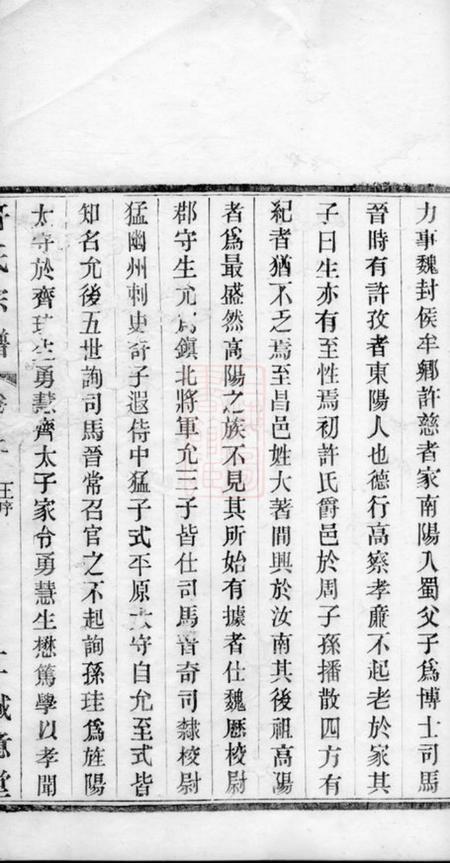 力事魏封侯牟鄉許慈者家南陽入蜀父子爲博士司馬
晉時有許孜者東陽人也德行高察孝廉不起老於家其
子曰生亦有至性焉初許氏爵邑於周子孫播散四方有
紀者猶不乏焉至昌邑姓大著間興於汝南其後祖高陽
者爲最盛然高陽之族不見其所始有據者仕魏歷校尉
郡守生允爲鎮北將軍允三子皆仕司馬晉奇司隸校尉
猛幽州刺史奇子遐侍中猛子式平原太守自允至式皆
知名允後五世詢司馬晉常召官之不起詢孫珪爲旌陽
太守於齊珪生勇慧齊太子家令勇慧生懋篤學以孝聞
許氏宗譜 卷 王序 誠意堂